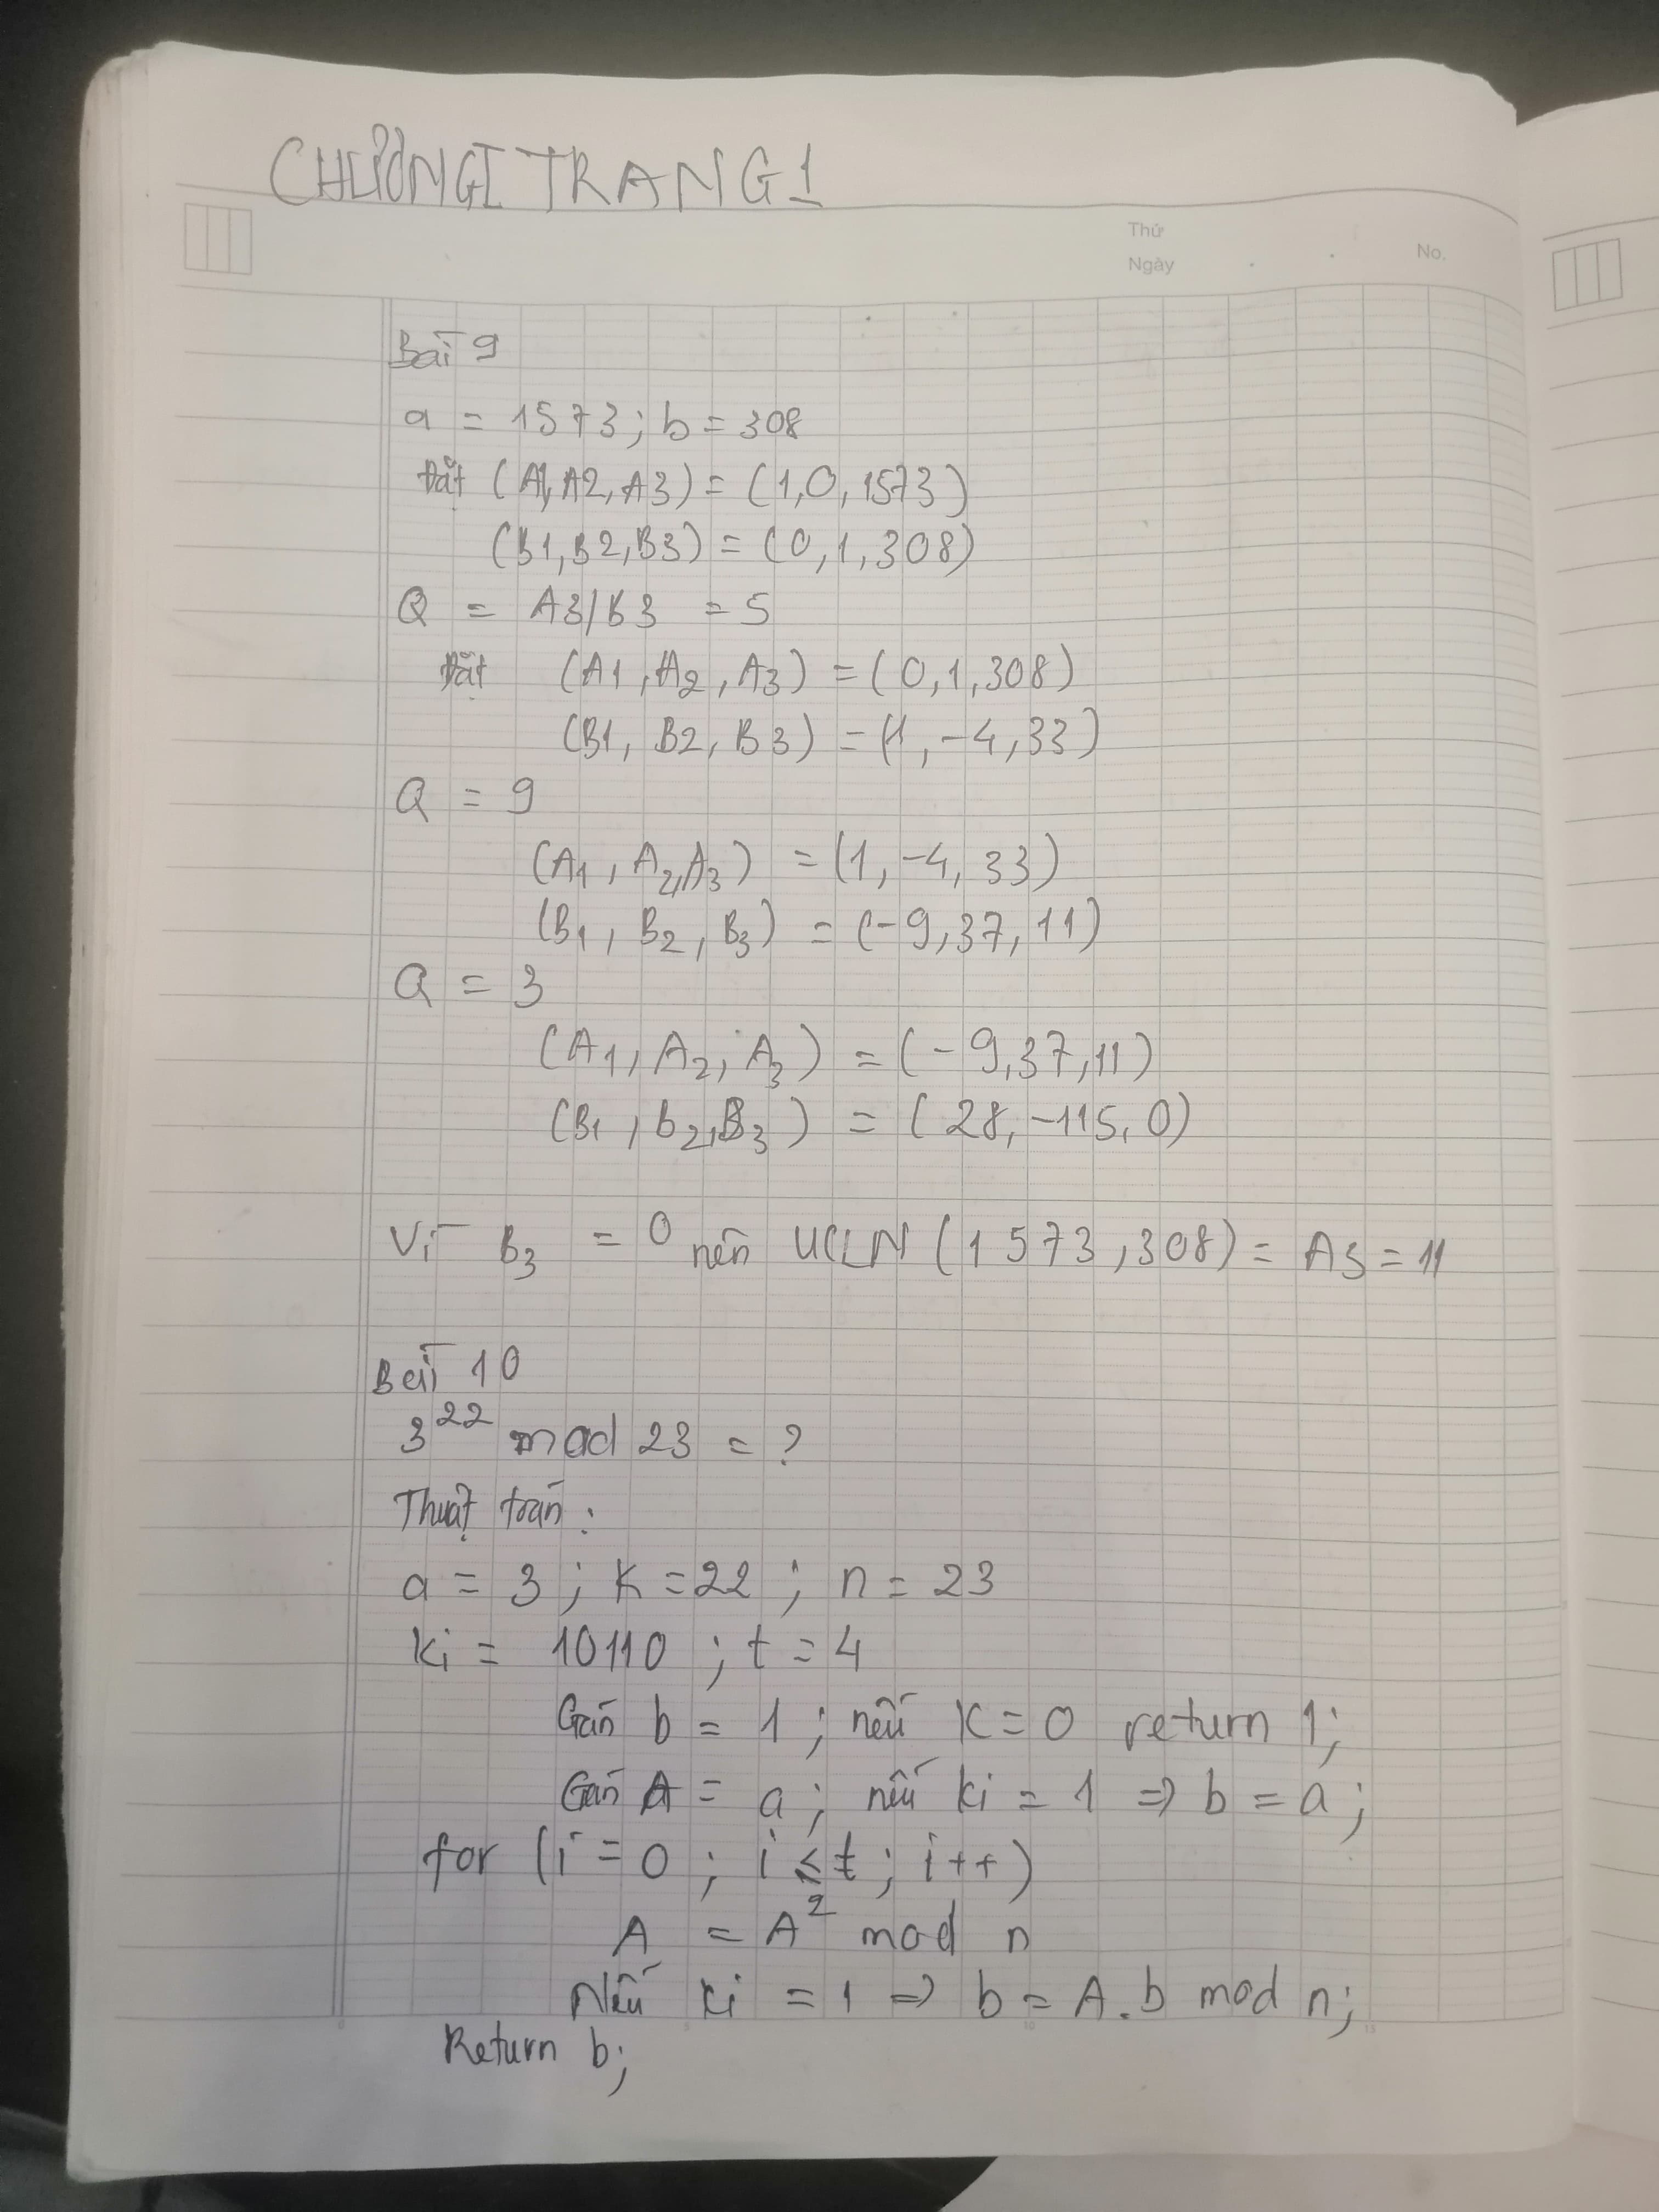 CHƯƠNG I TRANG 1
Thứ
Ngày
No.
Bài 9
a = 1573; b = 308
Đặt (A1, A2, A3) = (1, 0, 1573)
(B1, B2, B3) = (0, 1, 308)
Q = A3/B3 = 5
Đặt (A1, A2, A3) = (0, 1, 308)
(B1, B2, B3) = (1, -4, 33)
Q = 9
(A1, A2, A3) = (1, -4, 33)
(B1, B2, B3) = (-9, 37, 11)
Q = 3
(A1, A2, A3) = (-9, 37, 11)
(B1, b2, B3) = (28, -115, 0)
Vì B3 = 0 nên UCLN (1573, 308) = A3 = 11
Bài 10
3^22 mod 23 = ?
Thuật toán:
a = 3; K = 22; n = 23
ki = 10110; t = 4
Gán b = 1; nếu K = 0 return 1;
Gán A = a; nếu ki = 1 => b = a;
for (i = 0; i ≤ t; i++)
A = A² mod n
Nếu ki = 1 => b = A.b mod n;
Return b;